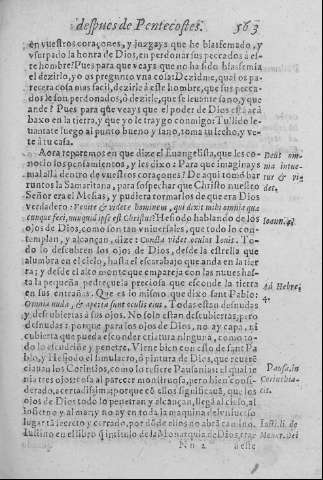 despues de Pentecostes. 563
en vuestros coraçones, y juzgays que he blasfemado, y
vsurpado la honra de Dios, en perdonar sus peccados à es-
te hombre? Pues para que veays que no ha sido blasfemia
el dezirlo, yo os pregunto vna cosa: Dezidme, qual os pa-
rece ra cosa mas facil, dezirle à este hombre, que sus pecca-
dos le son perdonados, ò dezirle, que se leuante sano, y que
ande? Pues para que veays que el poder de Dios està acà
baxo en la tierra, y que yo le traygo conmigo: Tullido le-
uantate luego al punto bueno y sano, toma tu lecho, y ve-
te à tu casa.
Aora reparemos en que dize el Euangelista, que les co-
nocio los pensamientos, y les dixo: Para que imaginays
mal allà dentro de vuestros coraçones? De aqui tomò bar
runtos la Samaritana, para sospechar que Christo nuestro
Señor era el Mesias, y pudiera tomarlos de que era Dios
verdadero: Venite & videte hominem, qui dixit mihi omnia quæ
cunque feci, nunquid ipse est Christus? Hesiodo hablando de los
ojos de Dios, como son tan vniuersales, que todo lo con-
templan, y alcançan, dize: Cuncta videt oculus Iouis. To-
do lo descubren los ojos de Dios, desde la estrella que
alumbra en el cielo, hasta el escarabajo que anda en la tier
ra; y desde el alto monte que empareja con las nuues has-
ta la pequeña pedreçuela preciosa que esconde la tierra
en sus entrañas. Que es lo mismo que dixo sant Pablo:
Omnia nuda, & aperta sunt oculis eius. Todas estan desnudas
y descubiertas à sus ojos. No solo estan descubiertas, pero
desnudas: porque para los ojos de Dios, no ay capa, ni
cubierta que pueda esconder criatura ninguna, como to-
do lo escudriñe y penetre. Viene bien con esto de sant Pa-
blo, y Hesiodo el simulacro, ò pintura de Dios, que reuere
ciauan los Corintios, como lo refiere Pausanias: el qual te
nia tres ojos: cosa al parecer monstruosa, pero bien consi-
derado, acertadissima: porque cò ellos significauà, que los
ojos de Dios todo lo penetran y alcançan, llega al cielo, al
infierno y al mar: y no ay en toda la maquina del vniuerso
lugar tã secreto y cerrado, por dõde ellos no abrã camino.
Iustino en el libro q̃ intitulò de la Monarquia de Dios, trae
Nn 2 à este
Ioann. 4
Ad Hebre.
4.
Pausa. in
Corinthia-
cis.
Iusti. li. de
Monar. Dei